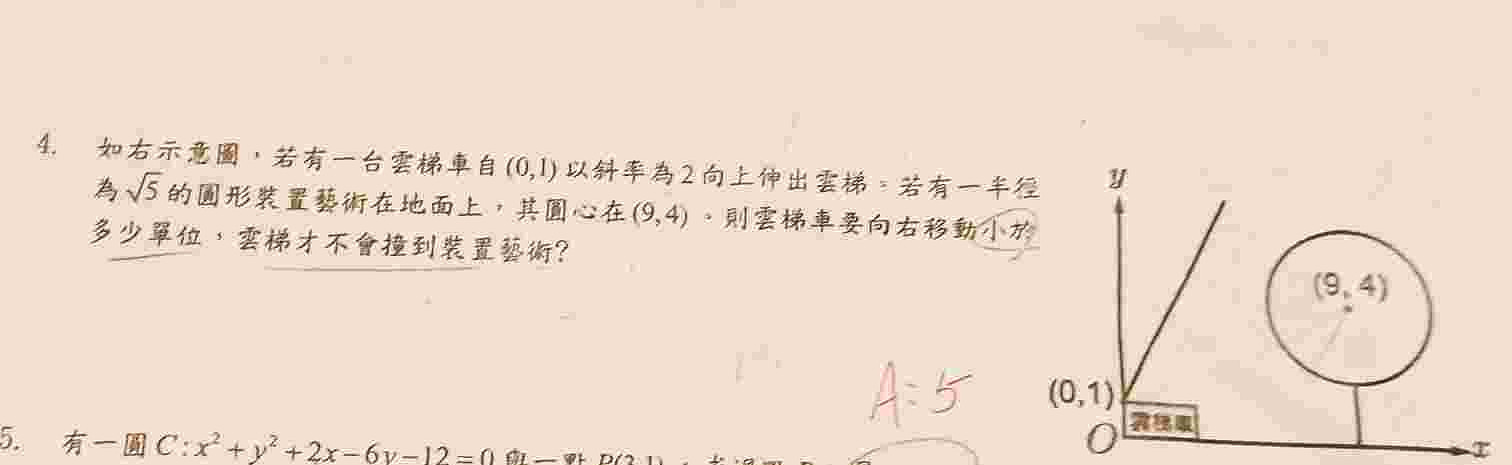 4. 如右示意圖，若有一台雲梯車自(0,1)以斜率為2向上伸出雲梯。若有一半徑
為√5的圓形裝置藝術在地面上，其圓心在(9,4)。則雲梯車要向右移動小於
多少單位，雲梯才不會撞到裝置藝術?
y
(9,4)
(0,1)
雲梯車
O
x
A:5
5. 有一圓C:x²+y²+2x-6y-12=0與一點P(3,1)